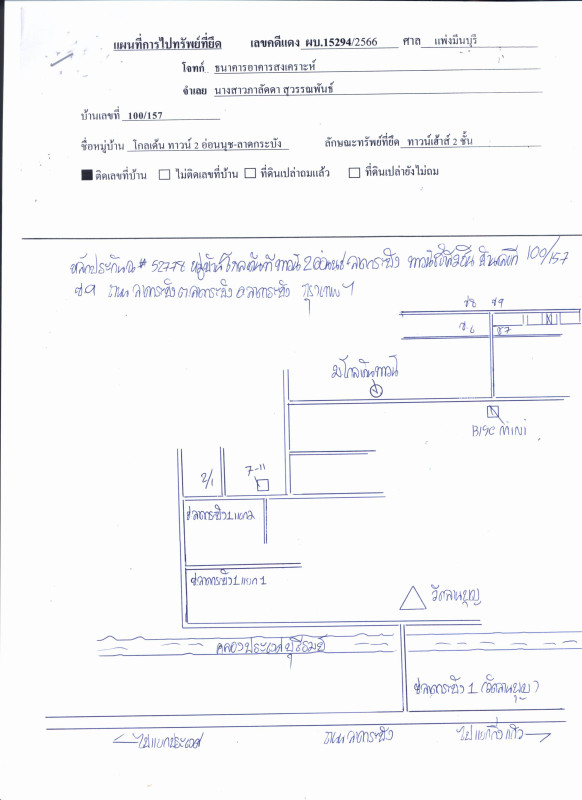 แผนที่การไปทรัพย์ที่ยึด เลขคดีแดง ผบ.15294/2566 ศาล แพ่งมีนบุรี
โจทก์ ธนาคารอาคารสงเคราะห์
จำเลย นางสาวภาลัดดา สุวรรณพันธ์
บ้านเลขที่ 100/157
ชื่อหมู่บ้าน โกลเด้น ทาวน์ 2 อ่อนนุช-ลาดกระบัง ลักษณะทรัพย์ที่ยึด ทาวน์เฮ้าส์ 2 ชั้น
ติดเลขที่บ้าน ไม่ติดเลขที่บ้าน ที่ดินเปล่าถมแล้ว ที่ดินเปล่ายังไม่ถม
หลักประกัน # 52778 หมู่บ้านโกลเด้นทาวน์ 2 อ่อนนุช ลาดกระบัง บ้านเลขที่ 100/157
ซ.9 ถนน ลาดกระบัง ต.ลาดกระบัง อ.ลาดกระบัง กรุงเทพฯ
ซ8 ซ9
ซ6 ซ7
ม.โกลเด้นทาวน์
BIGC mini
7-11
2/1
ซ.ลาดกระบัง 1 แยก 2
ซ.ลาดกระบัง 1 แยก 1
วัดลานบุญ
คลองประเวศบุรีรมย์
ซ.ลาดกระบัง 1 (วัดลานบุญ)
ไปแยกประเวศ ถนน ลาดกระบัง ไปแยกกิ่งแก้ว